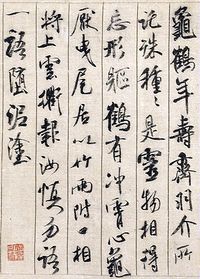 龜鶴年壽齊羽介所
託殊種々是靈物相得
忘形軀鶴有冲霄心龜
厭曳尾居以竹兩附口相
將上雲衢報汝慎勿語
一語墮泥塗